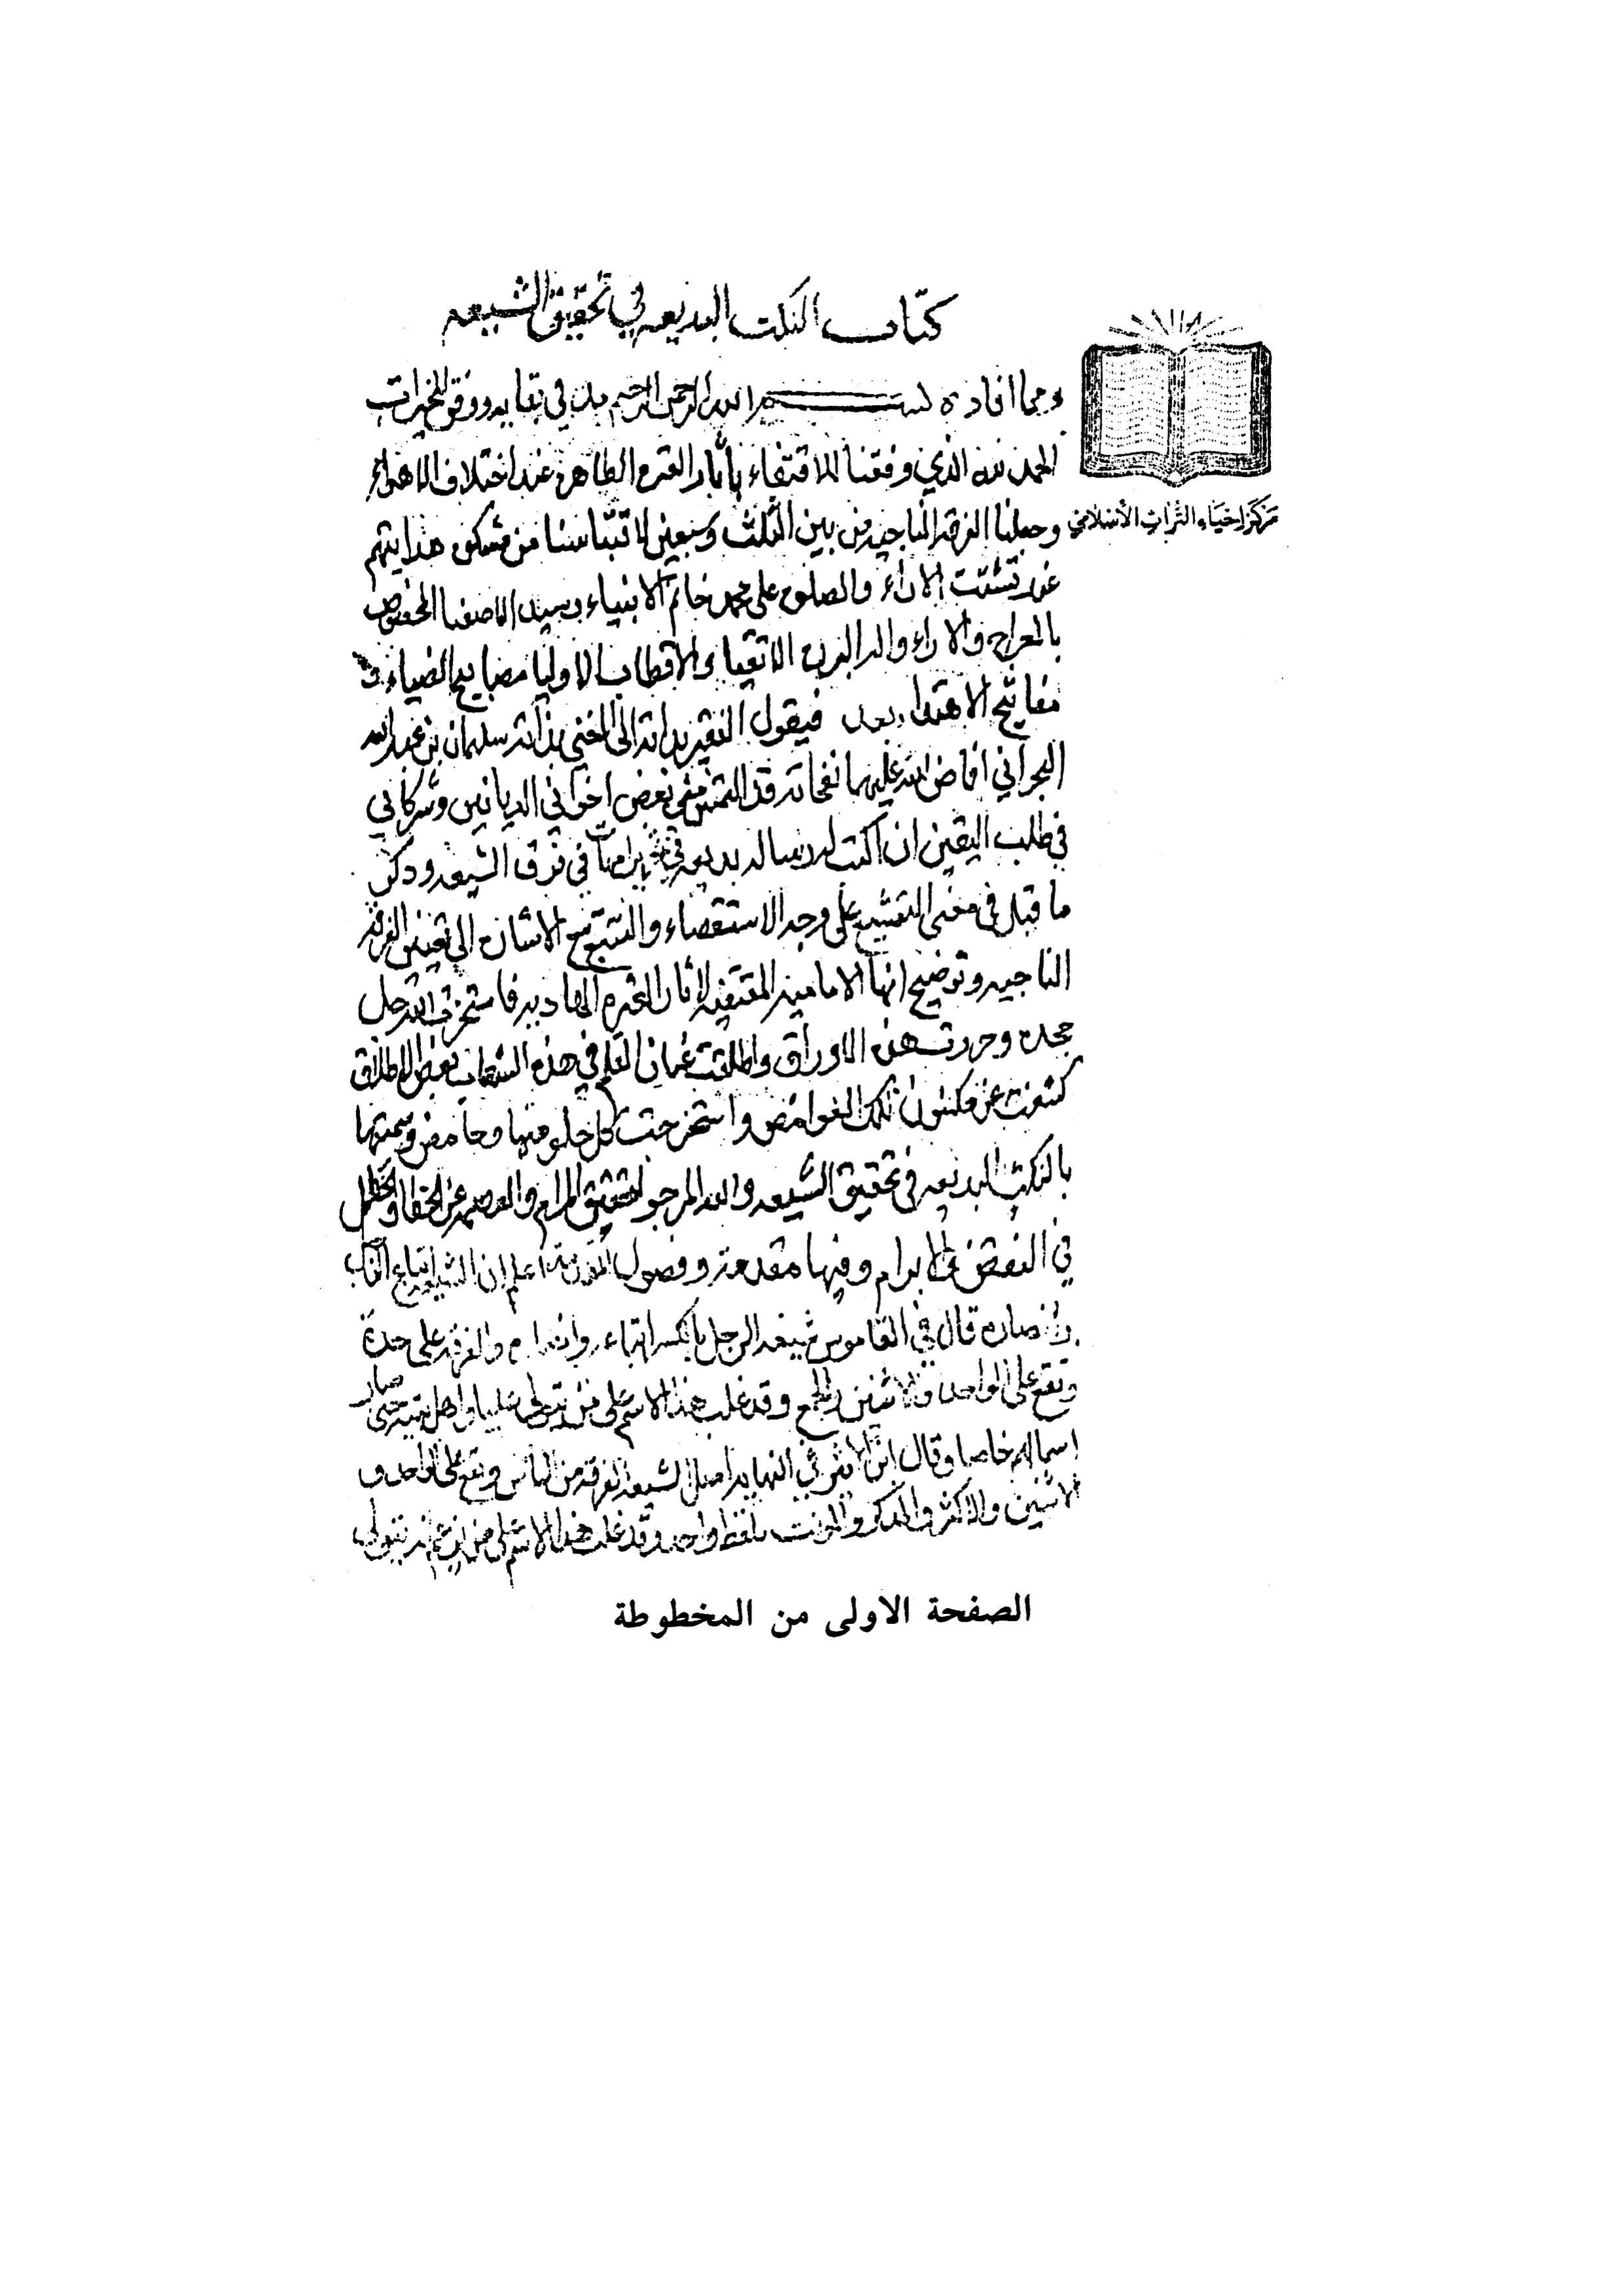 كتاب النكت البديعه في تحقيق الشيعه
ومما افاده بسم الله الرحمن الرحيم ووفق للخيرات
الحمد لله الذي وفقنا للاقتفاء بآثار العترة الطاهرة عند اختلاف الاهواء
مركز احياء التراث الاسلامي
وجعلنا الفرقه الناجيه من بين الثلث وسبعين لاقتباسنا من مشكوة هدايتهم
عند تشتت الاراء والصلوة على محمد خاتم الانبياء وسيد الاصفيا المخصوص
بالمعراج والاراء واله البررة الاتقياء والاقطاب الاوليا مصابيح الضياء و
مفاتيح الاهتدا وبعد فيقول الفقير الى الغني سليمان بن عبد الله
البحراني افاض الله عليهما نفحاته قد التمس مني بعض اخواني الديانين وشركائي
في طلب اليقين ان اكتب له رساله بديعه في فرق الشيعه وذكر
ما قيل في معنى التشيع على وجه الاستقصاء والتتبع مع الاشارة الى تعيين الفرقه
الناجيه وتوضيح انها الاماميه المقتفيه لاثار العترة الهاديه فاستخرت الله جل
مجده وحررت هذه الاوراق واطلقت عنان القلم في هذه الشعاب بعض الاطلاق
كشفت عن مكنون تلك الغوامض واستخرجت كل حلو منها وحامض وسميتها
بالنكت البديعه في تحقيق الشيعه والله المرجو لتحقيق المرام والعصمه عن الخطا والخطل
في النقض والابرام وفيها مقدمة وفصول المقدمة اعلم ان الشيعه اتباع
وانصاره قال في القاموس شيعه الرجل بالكسر اتباعه وانصاره والفرقه على حدة
وتقع على الواحد والاثنين والجمع وقد غلب هذا الاسم على من يتولى عليا واهل بيته حتى صار
اسما لهم خاصا وقال ابن الاثير في النهايه اصل الشيعه الفرقه من الناس وتقع على الواحد و
الاثنين والاكثر والمذكر والمؤنث بلفظ واحد وقد غلب هذا الاسم على من يزعم انه يتولى
الصفحة الاولى من المخطوطة